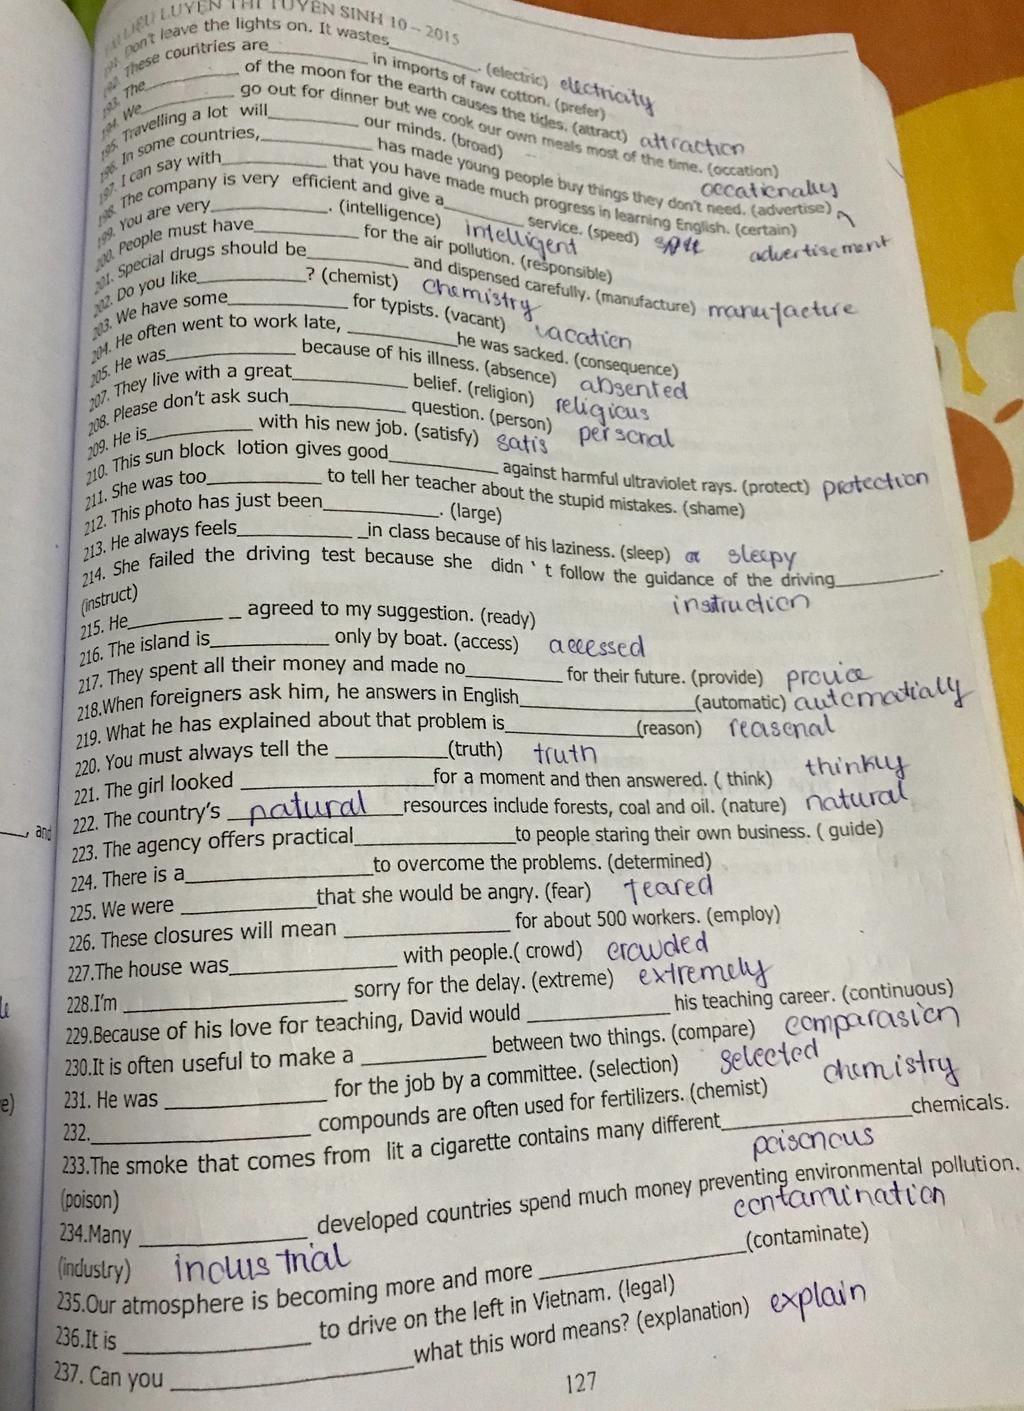 LIỆU LUYỆN THI TUYỂN SINH 10 – 2015
191. Don't leave the lights on. It wastes__________. (electric) electricity
192. These countries are__________ in imports of raw cotton. (prefer)
193. The__________ of the moon for the earth causes the tides. (attract) attraction
194. We__________ go out for dinner but we cook our own meals most of the time. (occation) occationally
195. Travelling a lot will__________ our minds. (broad)
196. In some countries,__________ has made young people buy things they don't need. (advertise) advertisement
197. I can say with__________ that you have made much progress in learning English. (certain)
198. The company is very efficient and give a__________ service. (speed)
199. You are very__________. (intelligence) intelligent
200. People must have__________ for the air pollution. (responsible)
201. Special drugs should be__________ and dispensed carefully. (manufacture) manufacture
202. Do you like__________? (chemist) chemistry
203. We have some__________ for typists. (vacant) vacation
204. He often went to work late, __________he was sacked. (consequence)
205. He was__________ because of his illness. (absence) absented
207. They live with a great__________ belief. (religion) religious
208. Please don't ask such__________ question. (person) personal
209. He is__________ with his new job. (satisfy) satis
210. This sun block lotion gives good__________ against harmful ultraviolet rays. (protect) protection
211. She was too__________ to tell her teacher about the stupid mistakes. (shame)
212. This photo has just been__________. (large)
213. He always feels__________ _in class because of his laziness. (sleep) sleepy
214. She failed the driving test because she didn ' t follow the guidance of the driving__________.
(instruct) instruction
215. He__________ _ agreed to my suggestion. (ready)
216. The island is__________ only by boat. (access) accessed
217. They spent all their money and made no__________ for their future. (provide)
218.When foreigners ask him, he answers in English__________(automatic) automatially
219. What he has explained about that problem is__________(reason) reasonal
220. You must always tell the __________(truth) truth
221. The girl looked __________for a moment and then answered. ( think) thinkly
222. The country's natural resources include forests, coal and oil. (nature) natural
, and
223. The agency offers practical__________to people staring their own business. ( guide)
224. There is a__________to overcome the problems. (determined)
225. We were __________that she would be angry. (fear) feared
226. These closures will mean __________ for about 500 workers. (employ)
227.The house was__________ with people.( crowd) crowded
228.I'm __________ sorry for the delay. (extreme) extremely
229.Because of his love for teaching, David would __________ his teaching career. (continuous)
230.It is often useful to make a __________ between two things. (compare) comparasion
231. He was __________ for the job by a committee. (selection) selected
e)
232.__________ compounds are often used for fertilizers. (chemist) chemistry
233.The smoke that comes from lit a cigarette contains many different__________chemicals.
(poison) poisonous
234.Many __________ developed countries spend much money preventing environmental pollution.
(industry) industrial
contamination
235.Our atmosphere is becoming more and more __________(contaminate)
236.It is __________ to drive on the left in Vietnam. (legal)
237. Can you __________what this word means? (explanation) explain
127